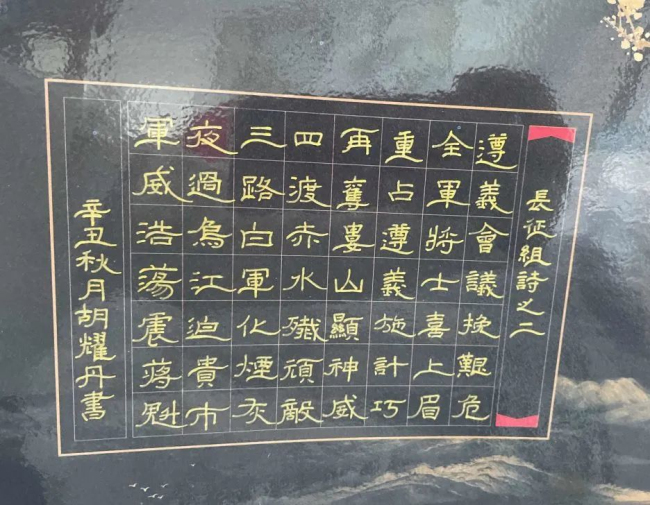 長征組詩之二
遵義會議挽艱危
全軍將士喜上眉
重占遵義施計巧
再奪婁山顯神威
四渡赤水殲頑敵
三路白軍化煙灰
夜過烏江迫貴市
軍威浩蕩震蔣魁
辛丑秋月胡耀丹書